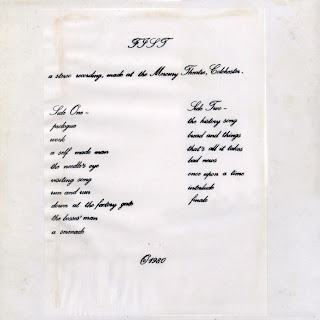 FIST
a stereo recording, made at the Mercury Theatre, Colchester.
Side One -
prologue
work
a self made man
the needle's eye
visiting song
run and run
down at the factory gate
the bosses' man
a serenade
Side Two -
the history song
bread and things
that's all it takes
bad news
once upon a time
interlude
finale
©1980